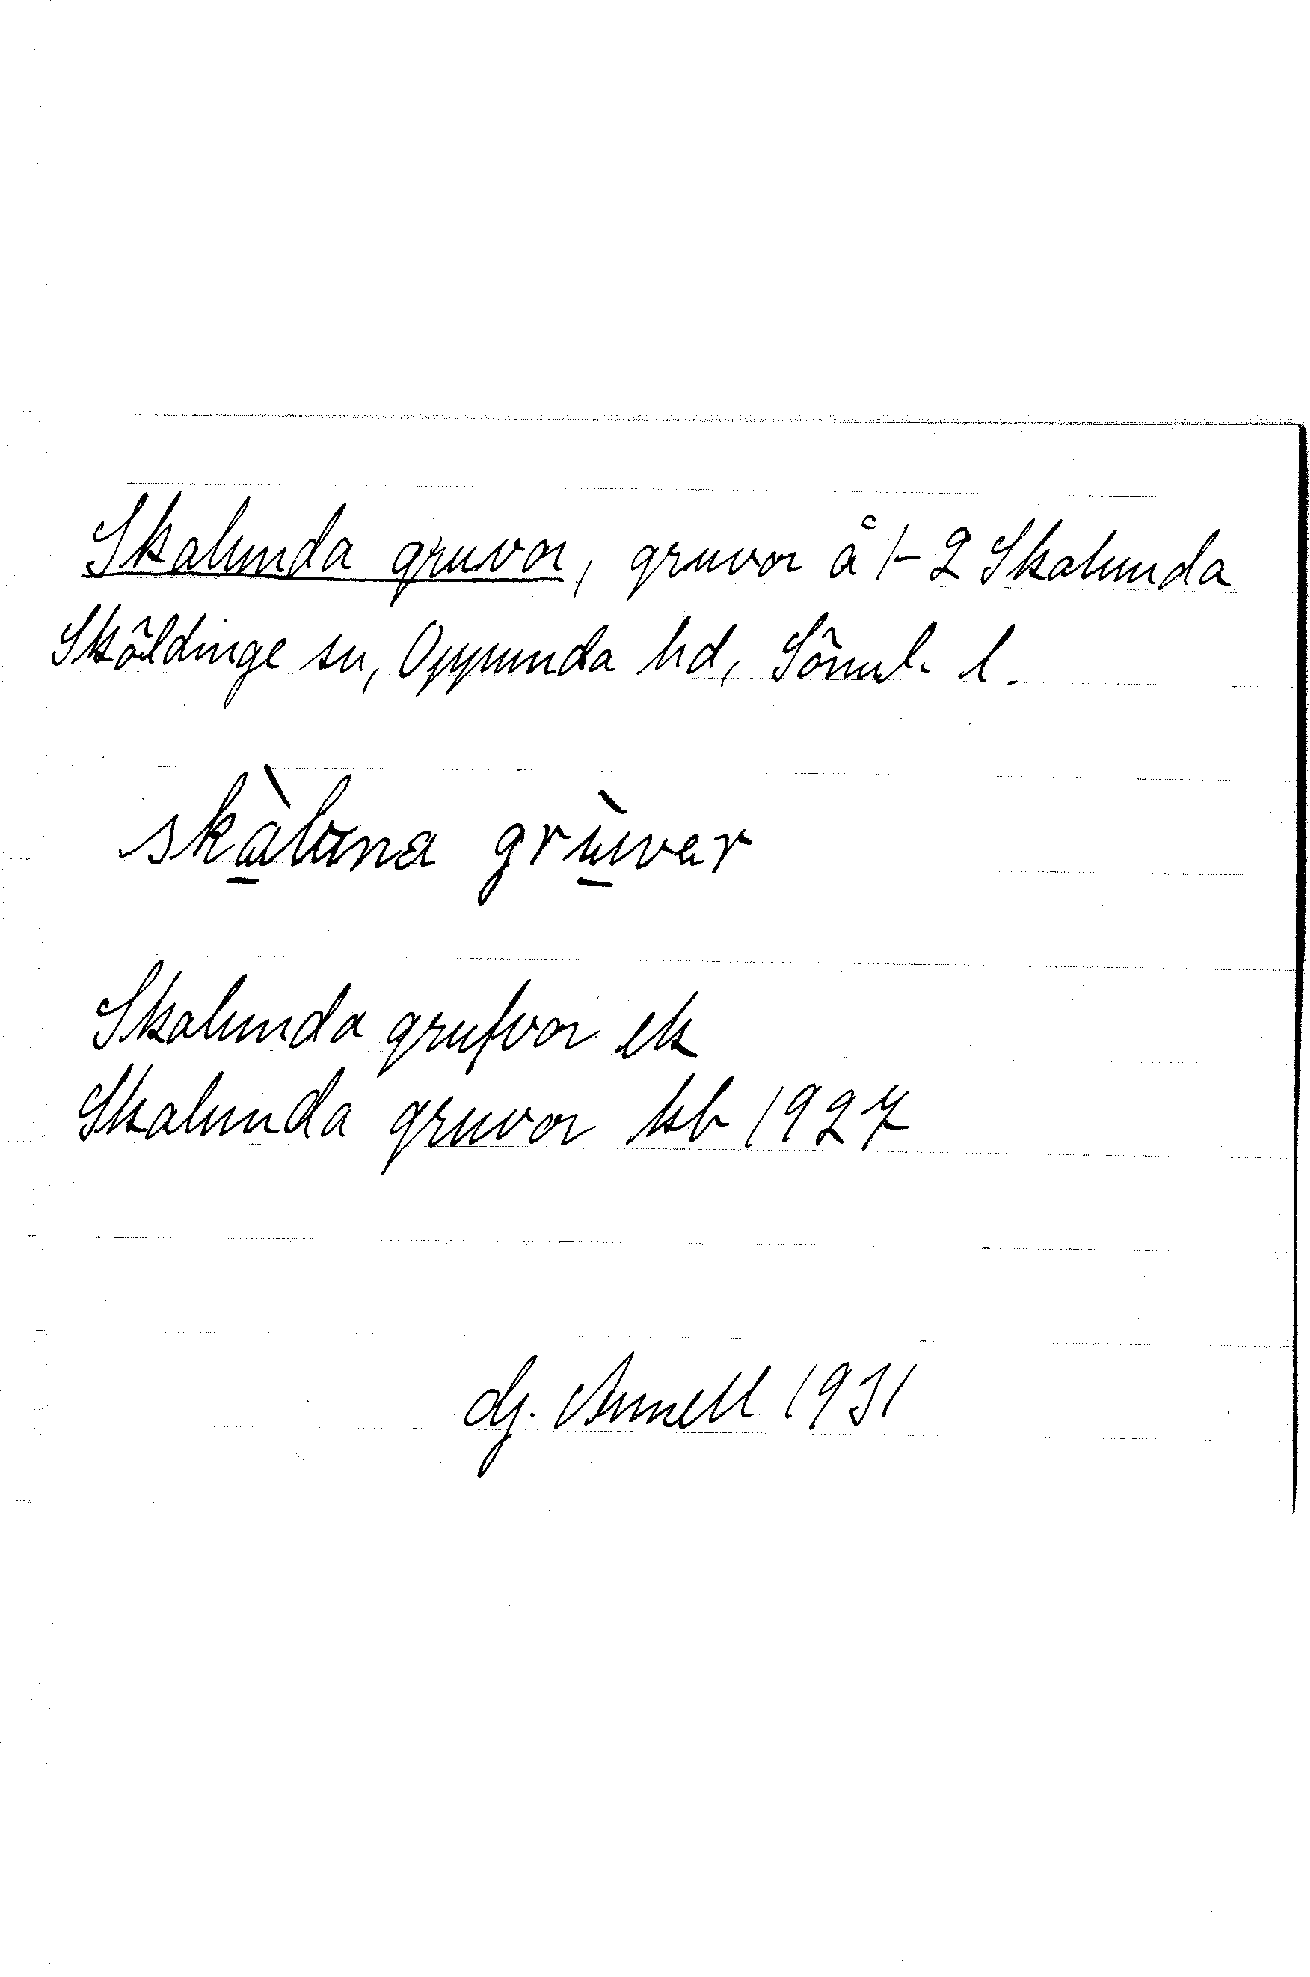 Skalunda gruvor, gruvor å 1-2 Skalunda
Sköldinge sn, Oppunda hd, Söml. l.
skàluna grùvar
Skalunda grufvor ek
Skalunda gruvor kb 1927
Gj. Annell 1931